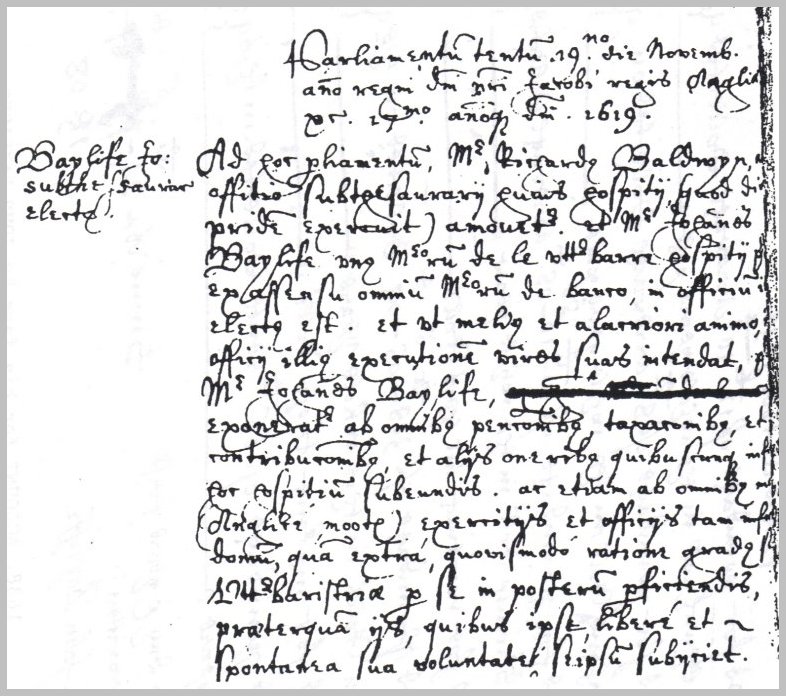 Parliamentū tentū .19.no die Novemb.
ano regni dni nri Jacobi regis Angliæ
&c. 17mo. anoq dni . 1619.
Baylife Jo:
subthesaurar
elect9.
Ad hoc pliamentū, Mr Richard9 Baldwyn,
offitio subthesaurarij huius hospitij (quod
pridē exercuit) amovetr. et Mr Johānes
Baylife vn9 Mrorū de le vttr barre hospitij
ex assensu omniū Mrorū de banco, in officiū
elect9 est. et vt meli9 et alacriori animo,
officij illi9 executionē vires suas intendat,
Mr Johānes Baylife,
exoneratr ab omnib9 penconib9, taxaconib9, et
contribuconib9, et alijs onerib9 quibuscunq
hoc hospitiū subeundis. ac etiam ab omnib9
(Anglice moote) exercitijs et officijs tam
domū, quā extra, quovismodo ratione grad9
Vttrbaristriæ p se in posterū pficiendis,
præterquā ijs, quibus ipse liberè et
spontanea sua voluntate seipsū subijciet.